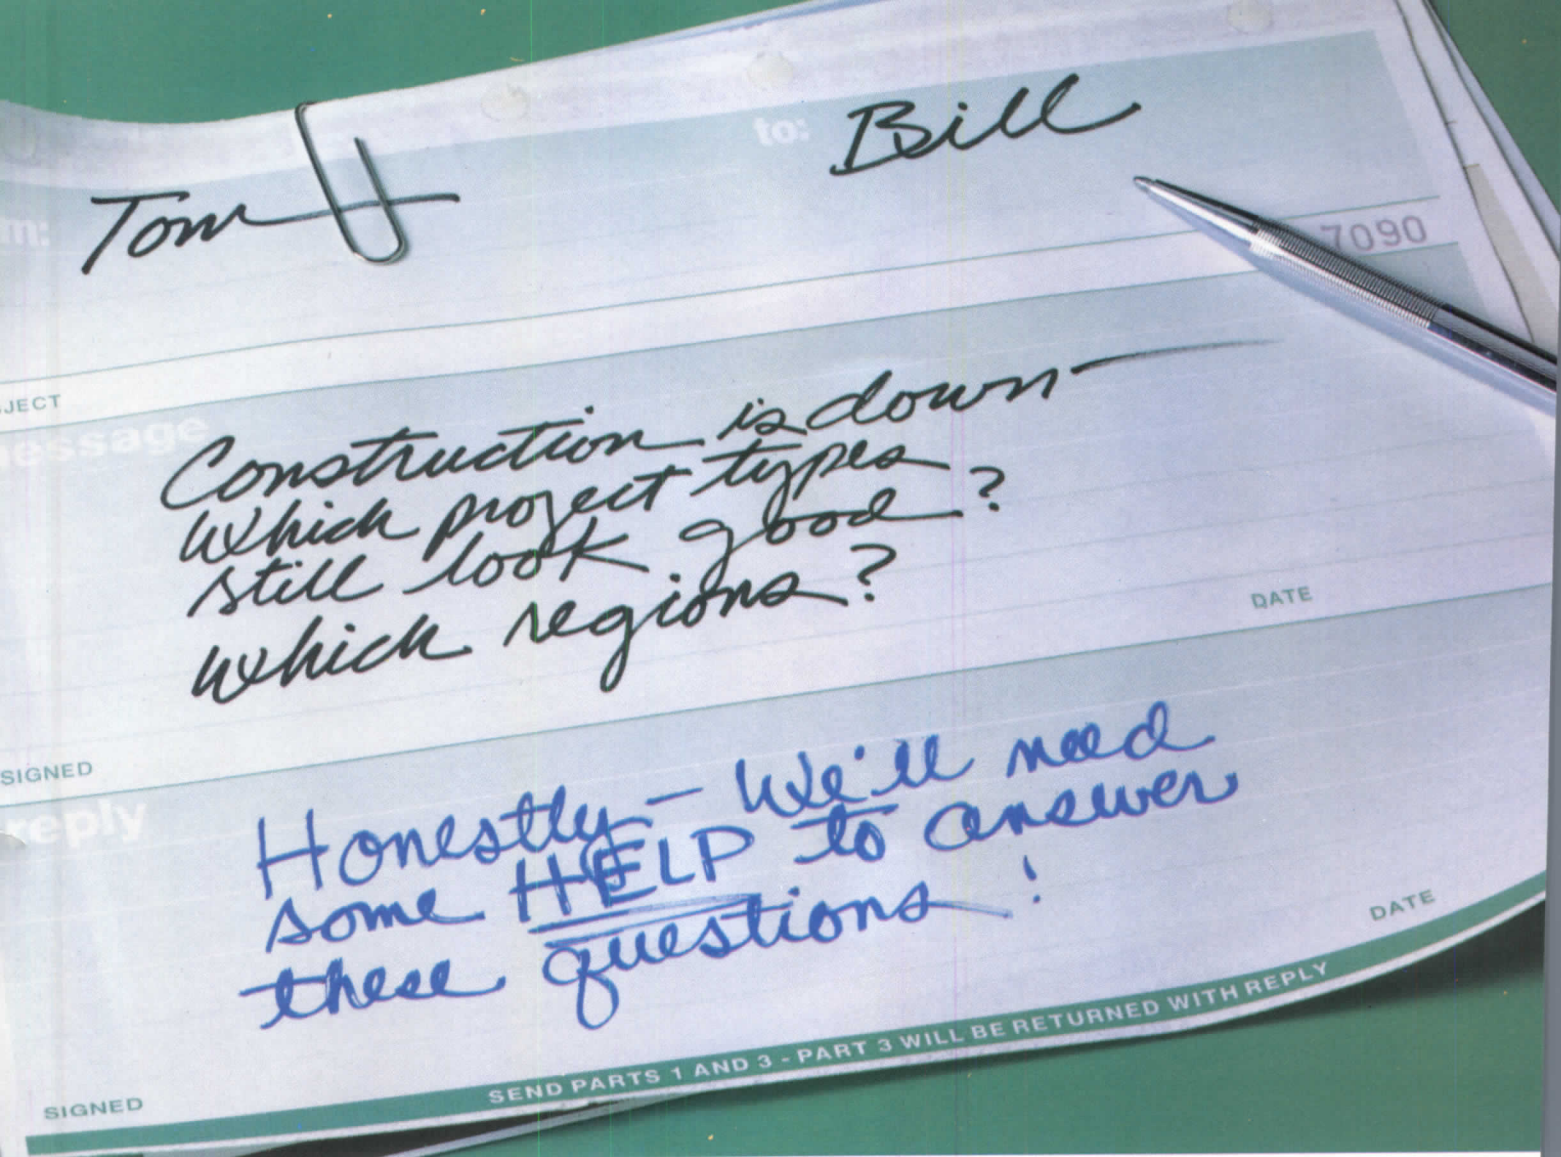 m: Tom to: Bill
7090
JECT
essage
Construction is down—
which project types
still look good?
which regions?
DATE
SIGNED
reply
Honestly — We'll need
some HELP to answer
these questions!
DATE
SEND PARTS 1 AND 3 - PART 3 WILL BE RETURNED WITH REPLY
SIGNED